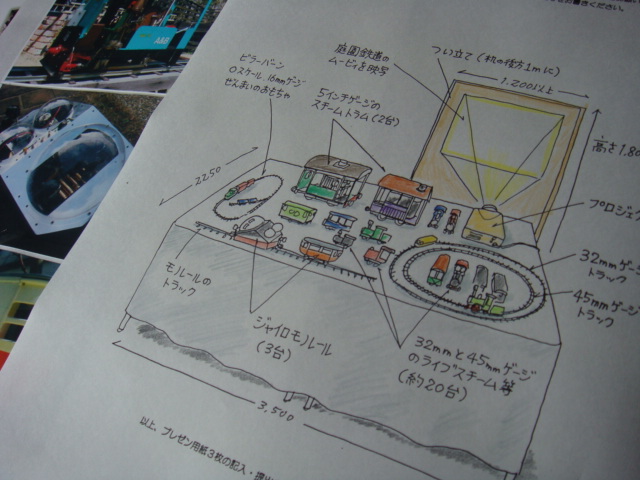 庭園鉄道の
ムービィを映写
つい立て(机の後方1mに)
1.200以上
高さ1.80
ビラーバーン
Oスケール.16mmゲージ
ぜんまいのおもちゃ
5インチゲージの
スチームトラム(2台)
2250
プロジェク
32mmゲージ
トラック
45mmゲージ
トラック
モノレールの
トラック
ジャイロモノレール
(3台)
32mmと45mmゲージ
のライブスチーム等
(約20台)
3,500
以上、プレゼン用紙3枚の記入・提出